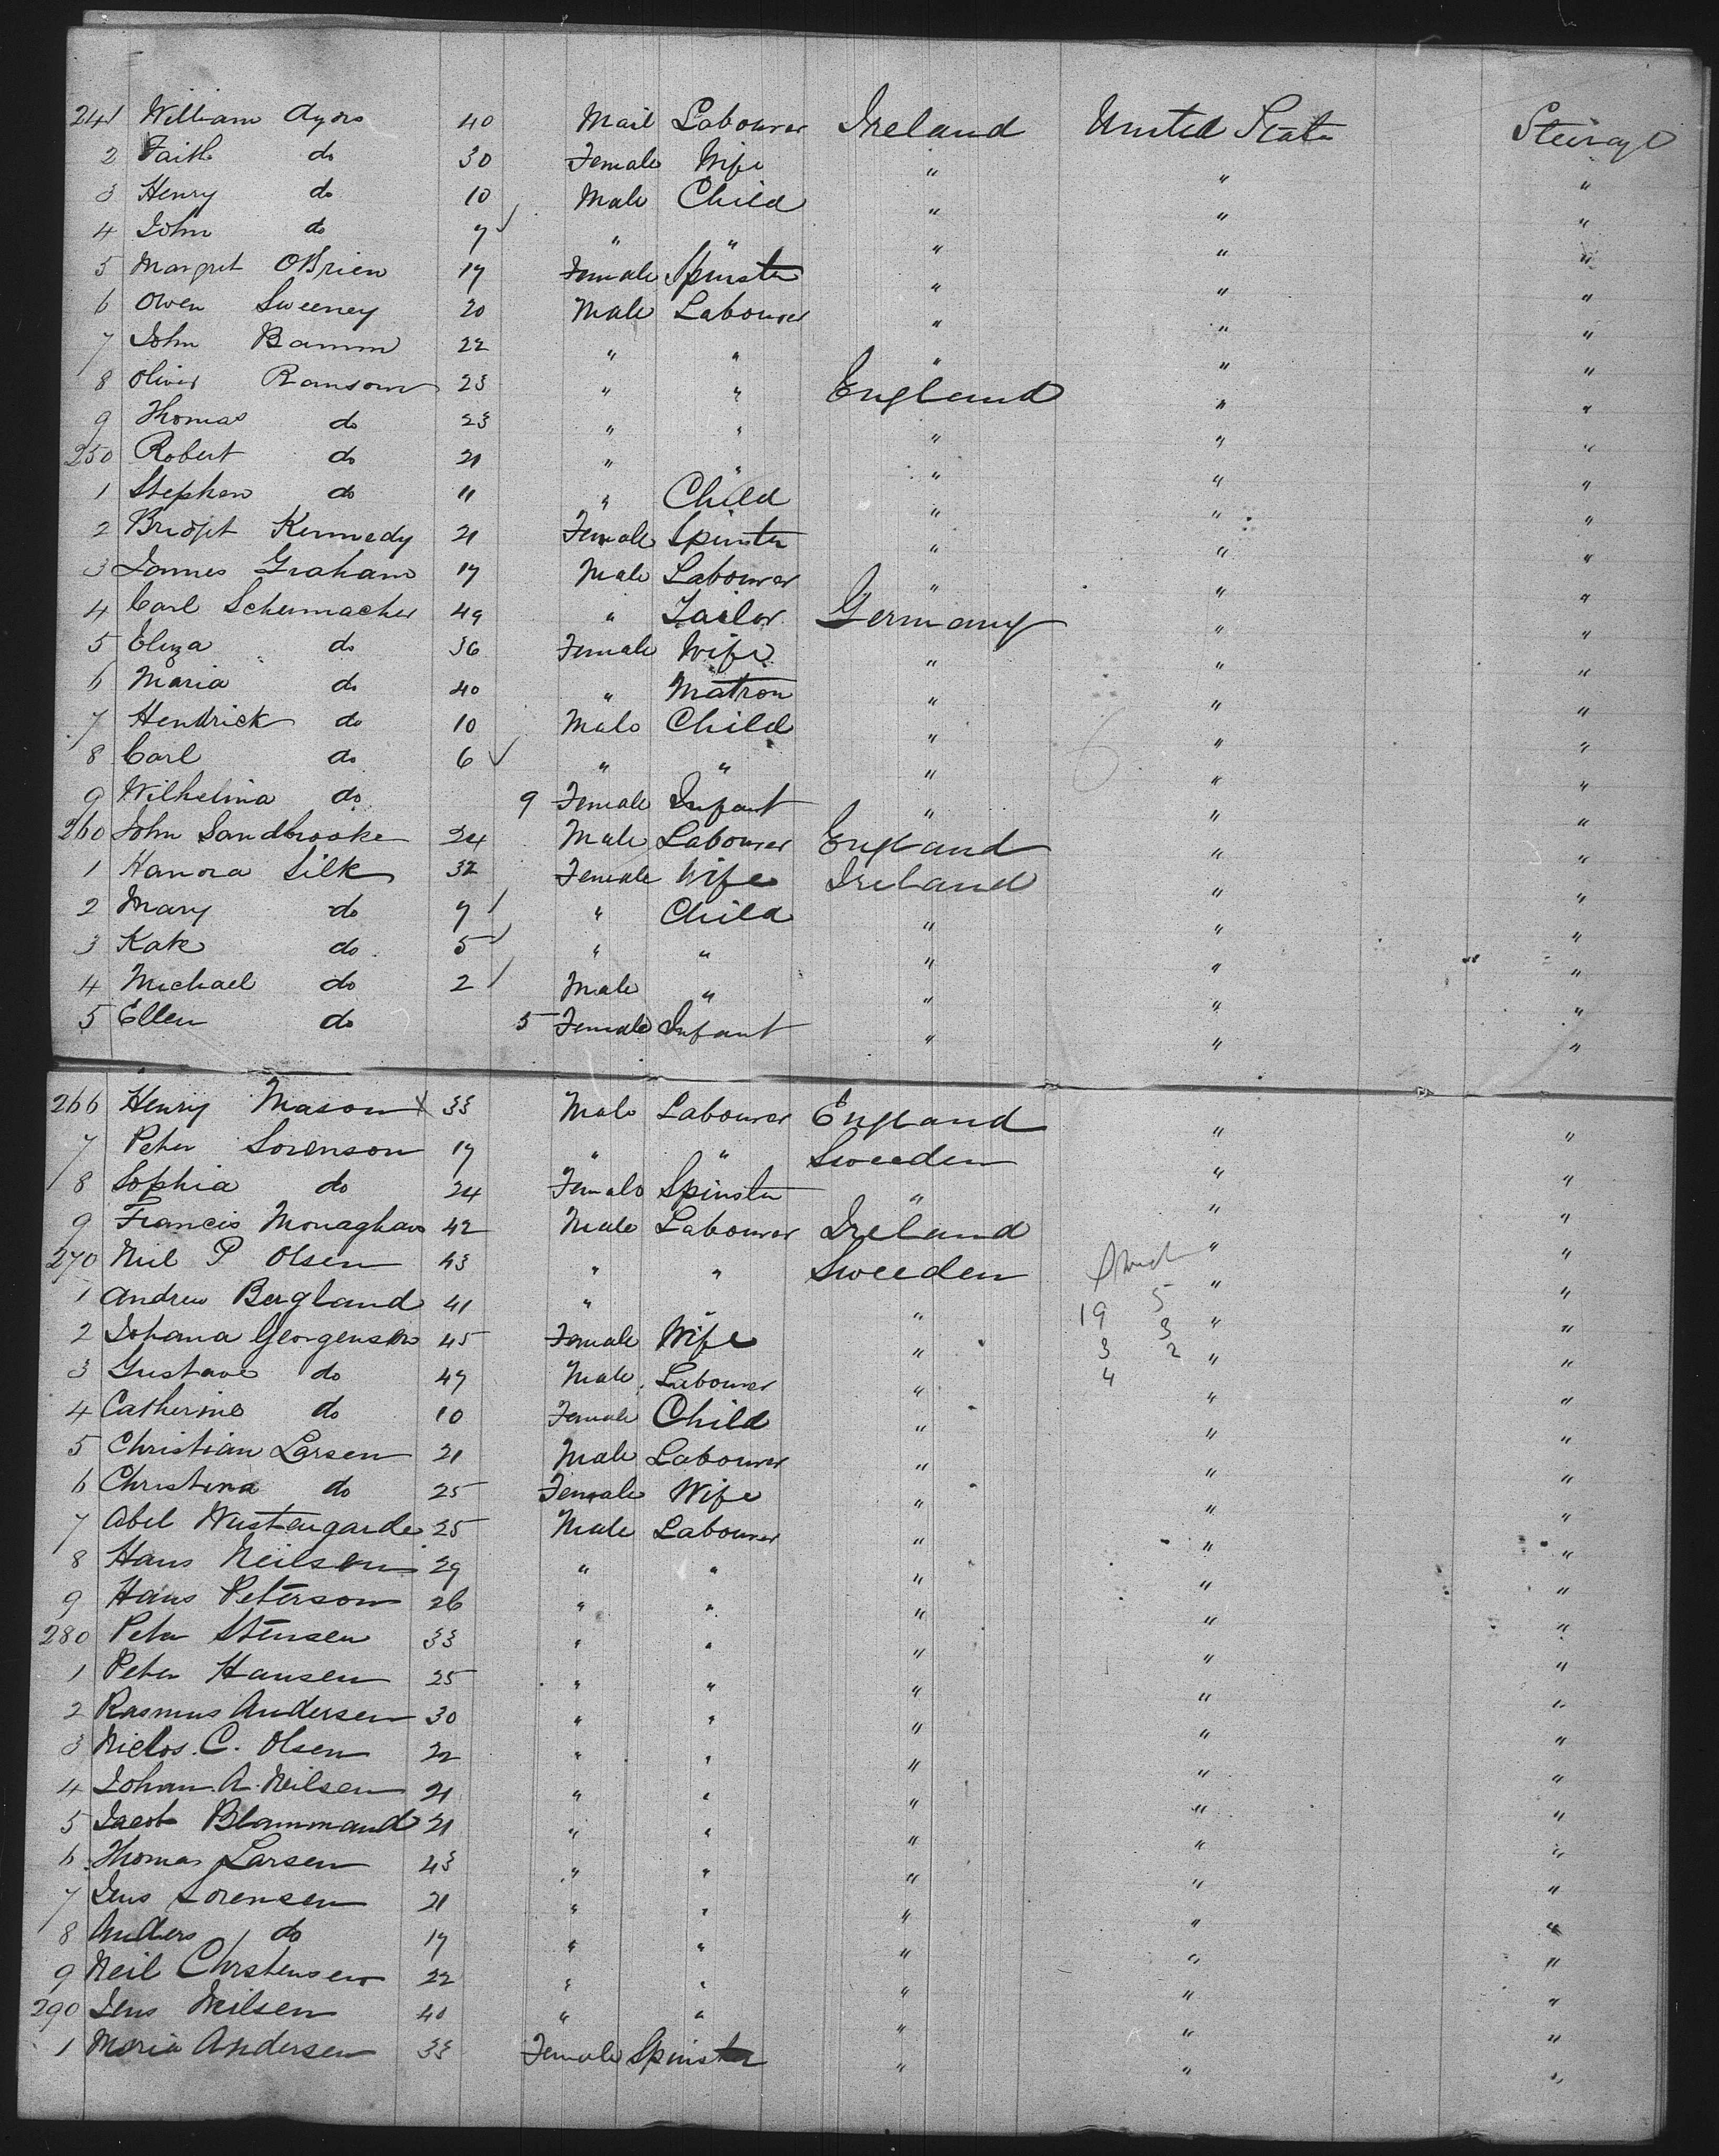 241 William Ayors 40 Mail Labourer Ireland United State Steirage
2 Faith do 30 Female Wife " " "
3 Henry do 10 Male Child " " "
4 John do 7 ✓ " " " " "
5 Margret OBrien 17 Female Spinster " " "
6 Owen Sweeney 20 Male Labourer " " "
7 John Bamm 22 " " " " "
8 Oliver Ransom 23 " " England " "
9 Thomas do 23 " " " " "
250 Robert do 21 " " " " "
1 Stephen do 11 " Child " " "
2 Bridget Kennedy 21 Female Spinster " " "
3 James Graham 17 Male Labourer " " "
4 Carl Schermacher 49 " Tailor Germany " "
5 Eliza do 36 Female Wife " " "
6 Maria do 40 " Matron " " "
7 Hendrick do 10 Male Child " " "
8 Carl do 6 ✓ " " " " "
9 Wilhelmina do 9 Female Infant " " "
260 John Sandbrooke 24 Male Labourer England " "
1 Hanora Silk 32 Female Wife Ireland " "
2 Mary do 7 / " Child " " "
3 Kate do 5 / " " " " "
4 Michael do 2 / Male " " " "
5 Ellen do 5 Female Infant " " "
266 Henry Mason x 33 Male Labourer England " "
7 Peter Sorenson 17 " " Sweeden " "
8 Sophia do 24 Female Spinster " " "
9 Francis Monaghan 42 Male Labourer Ireland " "
270 Neil P Olsen 43 " " Sweeden " "
1 Andrew Bergland 41 " " " 19 5 " "
2 Johana Georgensen 45 Female Wife " 3 3 2 " "
3 Gustave do 47 Male Labourer " 4 " "
4 Catherine do 10 Female Child " " "
5 Christian Larsen 21 Male Labourer " " "
6 Christina do 25 Female Wife " " "
7 Abel Wustengarde 25 Male Labourer " " "
8 Hans Neilsen 29 " " " " "
9 Hans Peterson 26 " " " " "
280 Peter Stensen 33 " " " " "
1 Peter Hansen 25 " " " " "
2 Rasmus Andersen 30 " " " " "
3 Niclos. C. Olsen 22 " " " " "
4 Johan. A. Neilsen 21 " " " " "
5 Jacob Blammand 21 " " " " "
6 Thomas Larsen 43 " " " " "
7 Jens Sorensen 21 " " " " "
8 Anders do 17 " " " " "
9 Neil Chrstensen 22 " " " " "
290 Jens Neilsen 40 " " " " "
1 Moria Andersen 33 Female Spinster " " "